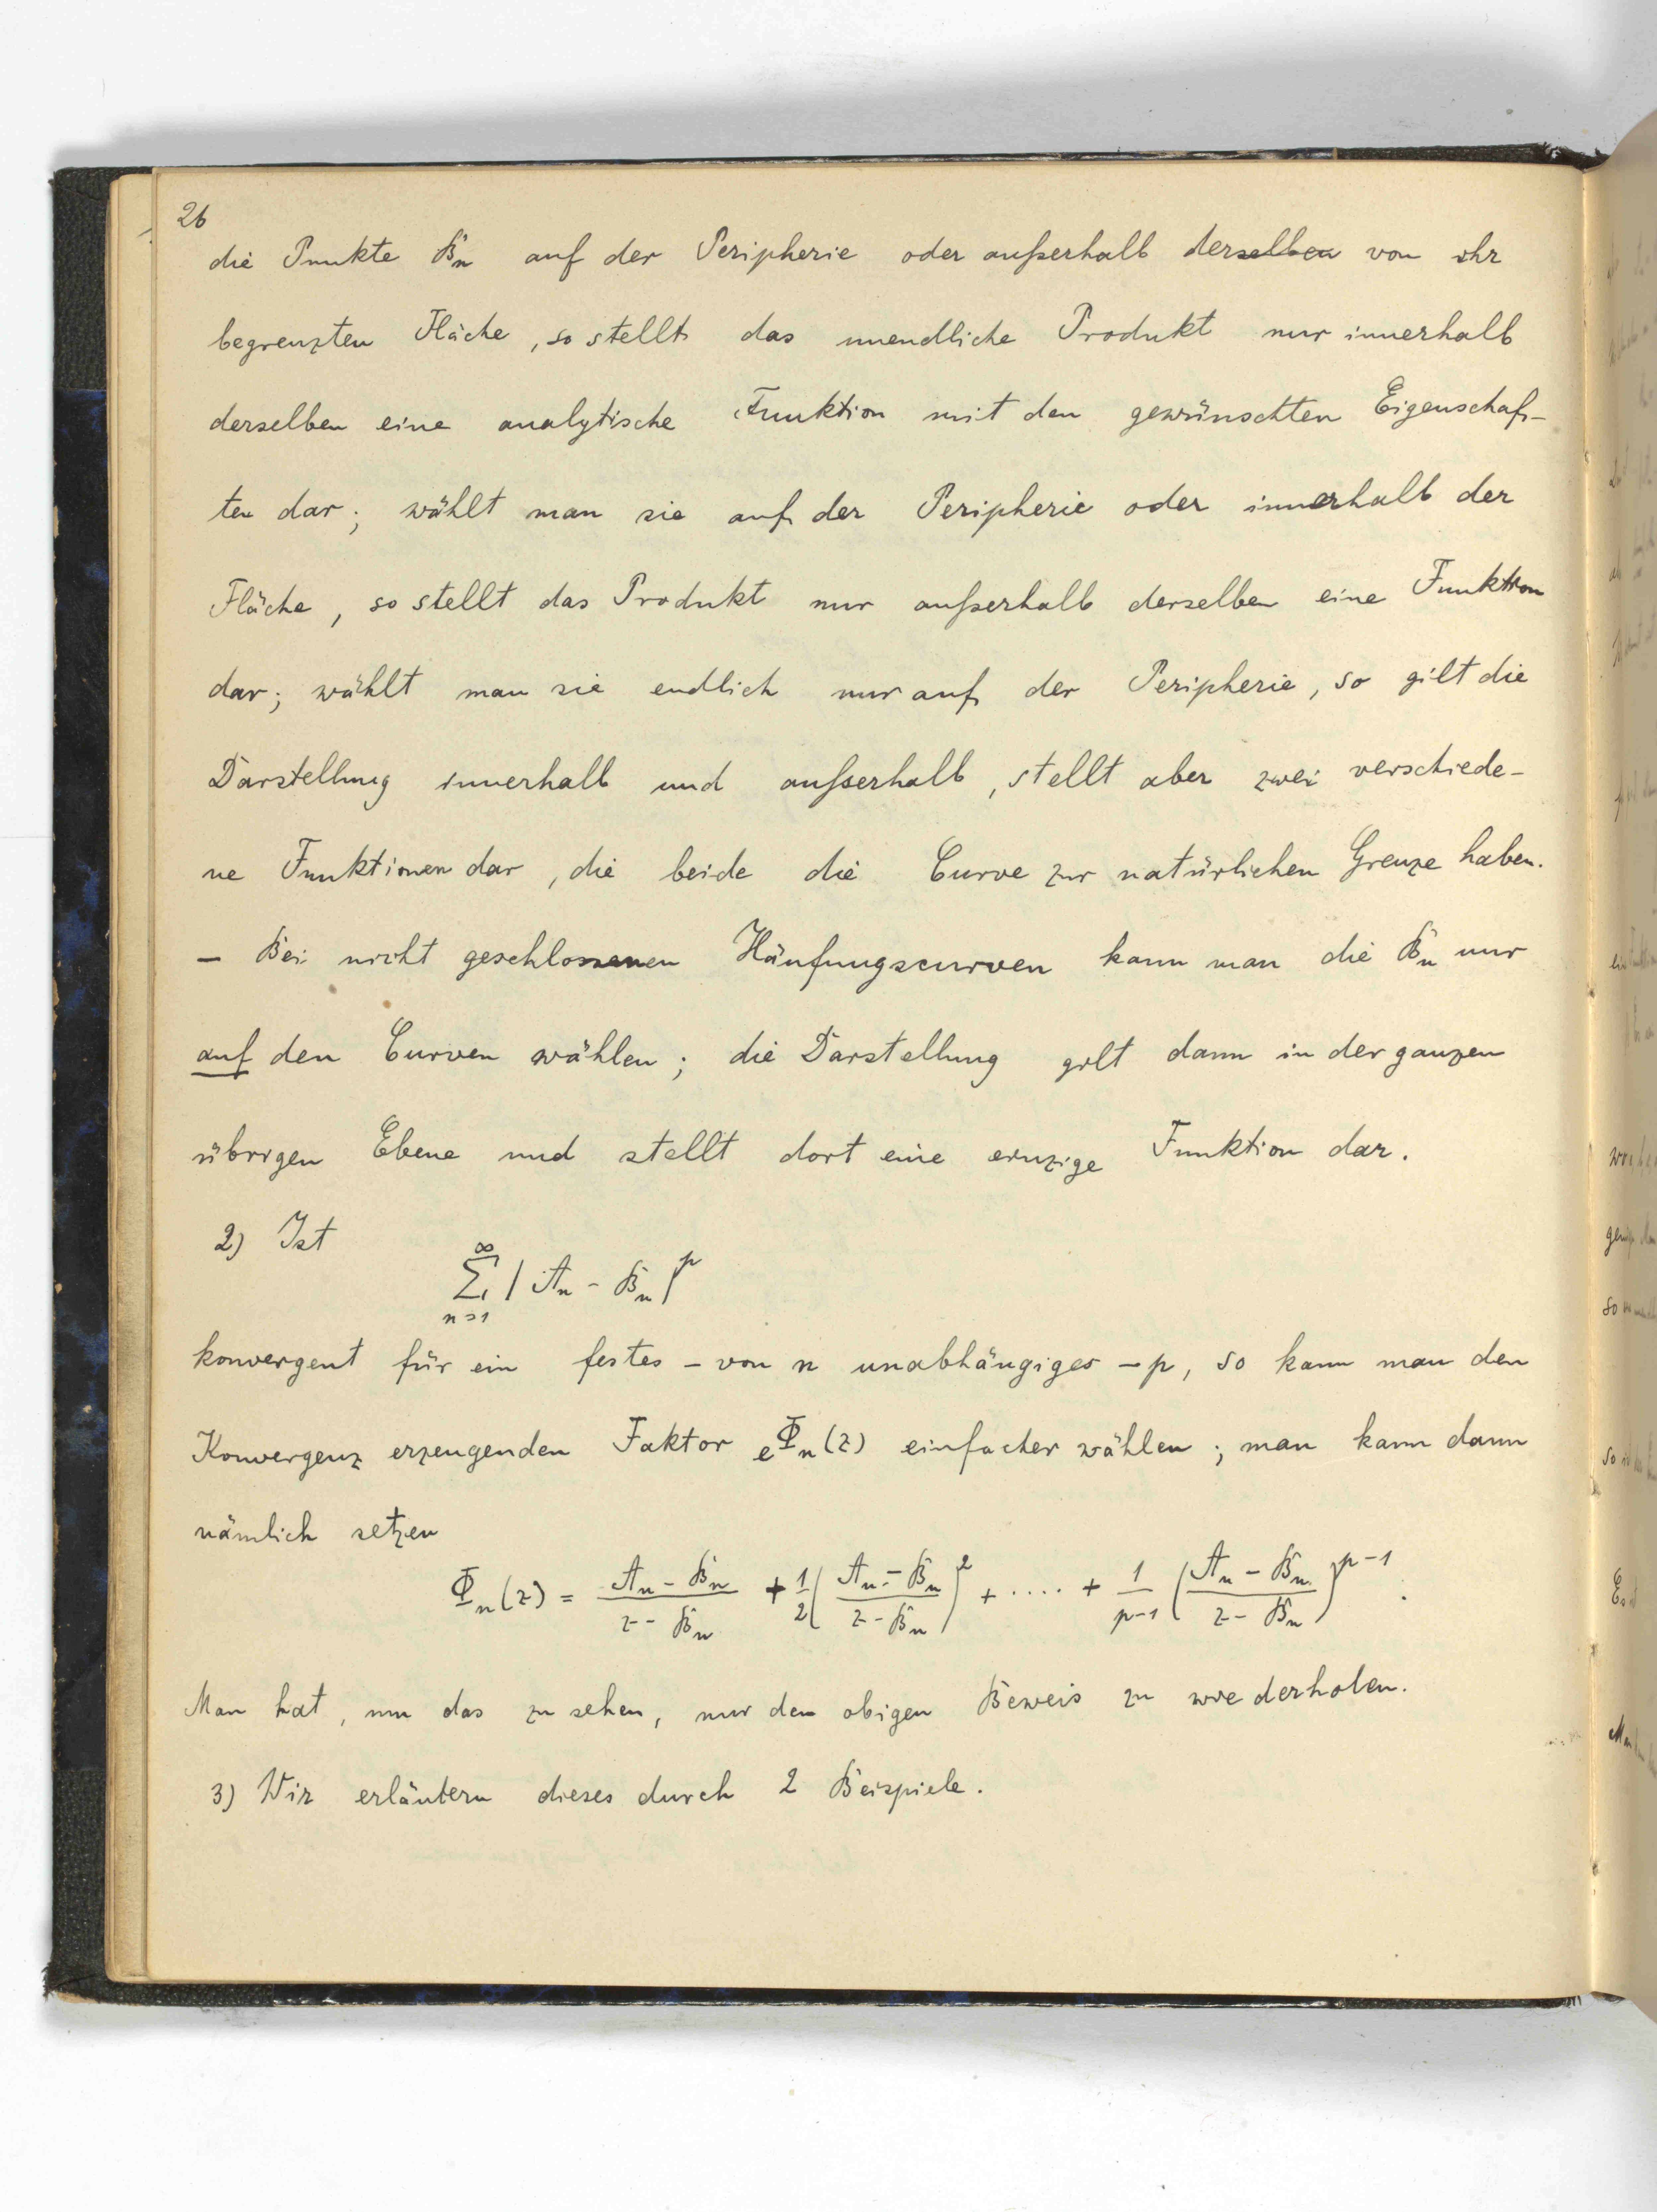 26
die Punkte Bn auf der Peripherie oder außerhalb derselben von ihr
begrenzten Fläche, so stellt das unendliche Produkt nur innerhalb
derselben eine analytische Funktion mit den gewünschten Eigenschaf-
ten dar; wählt man sie auf der Peripherie oder innerhalb der
Fläche, so stellt das Produkt nur außerhalb derselben eine Funktion
dar; wählt man sie endlich nur auf der Peripherie, so gilt die
Darstellung innerhalb und außerhalb, stellt aber zwei verschiede-
ne Funktionen dar, die beide die Curve zur natürlichen Grenze haben.
– Bei nicht geschlossenen Häufungscurven kann man die Bn nur
auf den Curven wählen; die Darstellung gilt dann in der ganzen
übrigen Ebene und stellt dort eine einzige Funktion dar.
2) Ist
∑_{n=1}^{∞} |An - Bn|^p
konvergent für ein festes – von n unabhängiges – p, so kann man den
Konvergenz erzeugenden Faktor e^{Φn(z)} einfacher wählen; man kann dann
nämlich setzen
Φn(z) = (An - Bn)/(z - Bn) + 1/2 ((An - Bn)/(z - Bn))^2 + .... + 1/(p-1) ((An - Bn)/(z - Bn))^{p-1}.
Man hat, um das zu sehen, nur den obigen Beweis zu wiederholen.
3) Wir erläutern dieses durch 2 Beispiele.